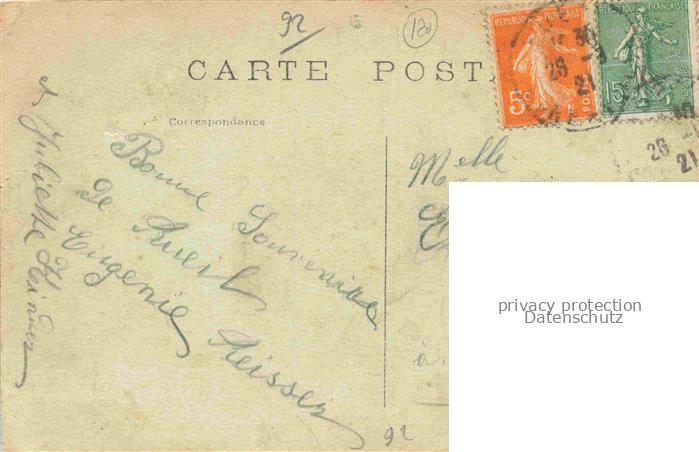 92
120
CARTE POST
REPUBLIQUE FRANÇAISE
5c
POSTES
REPUBLIQUE FRANÇAISE
15c
26
21
26
21
Correspondance
Melle
Bonne Souvenirs
De Rueil
Eugenie Reisser
et Juliette
à
92
privacy protection
Datenschutz